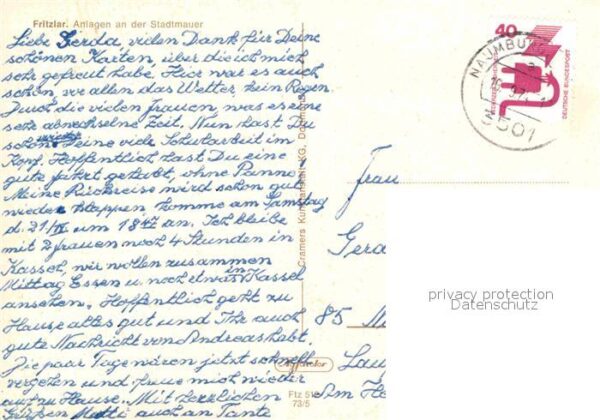 Fritzlar. Anlagen an der Stadtmauer
Liebe Gerda, vielen Dank für Deine
schönen Karten, über die ich mich
sehr gefreut habe. Hier war es auch
schön, vor allen das Wetter, kein Regen.
Durch die vielen Frauen, war es eine
sehr abwechselne Zeit. Nun hast Du
schon wieder Deine viele Schularbeit im
Kopf. Hoffentlich hast Du eine
gute Fahrt gehabt, ohne Panne.
Meine Rückreise wird schon gut
wieder klappen, komme am Samstag
d. 21/IV um 18 47 an. Ich bleibe
mit 2 Frauen noch 4 Stunden in
Kassel, wir wollen zusammen
Mittag Essen u. noch etwas in Kassel
ansehen. Hoffentlich geht zu
Hause alles gut und Ihr auch
gute Nachricht von Andreas habt.
Die paar Tage wären jetzt schnell
vergehen und freue mich wieder
auf zu Hause. Mit herzlichen
Grüssen Mutti auch an Tante
Cramers Kunstanstalt KG, Dortmund
Ftz 51
73/5
40
DEUTSCHE BUNDESPOST
NAUMBU
3501
Frau
Gerd
85
Lau
Am
privacy protection
Datenschutz